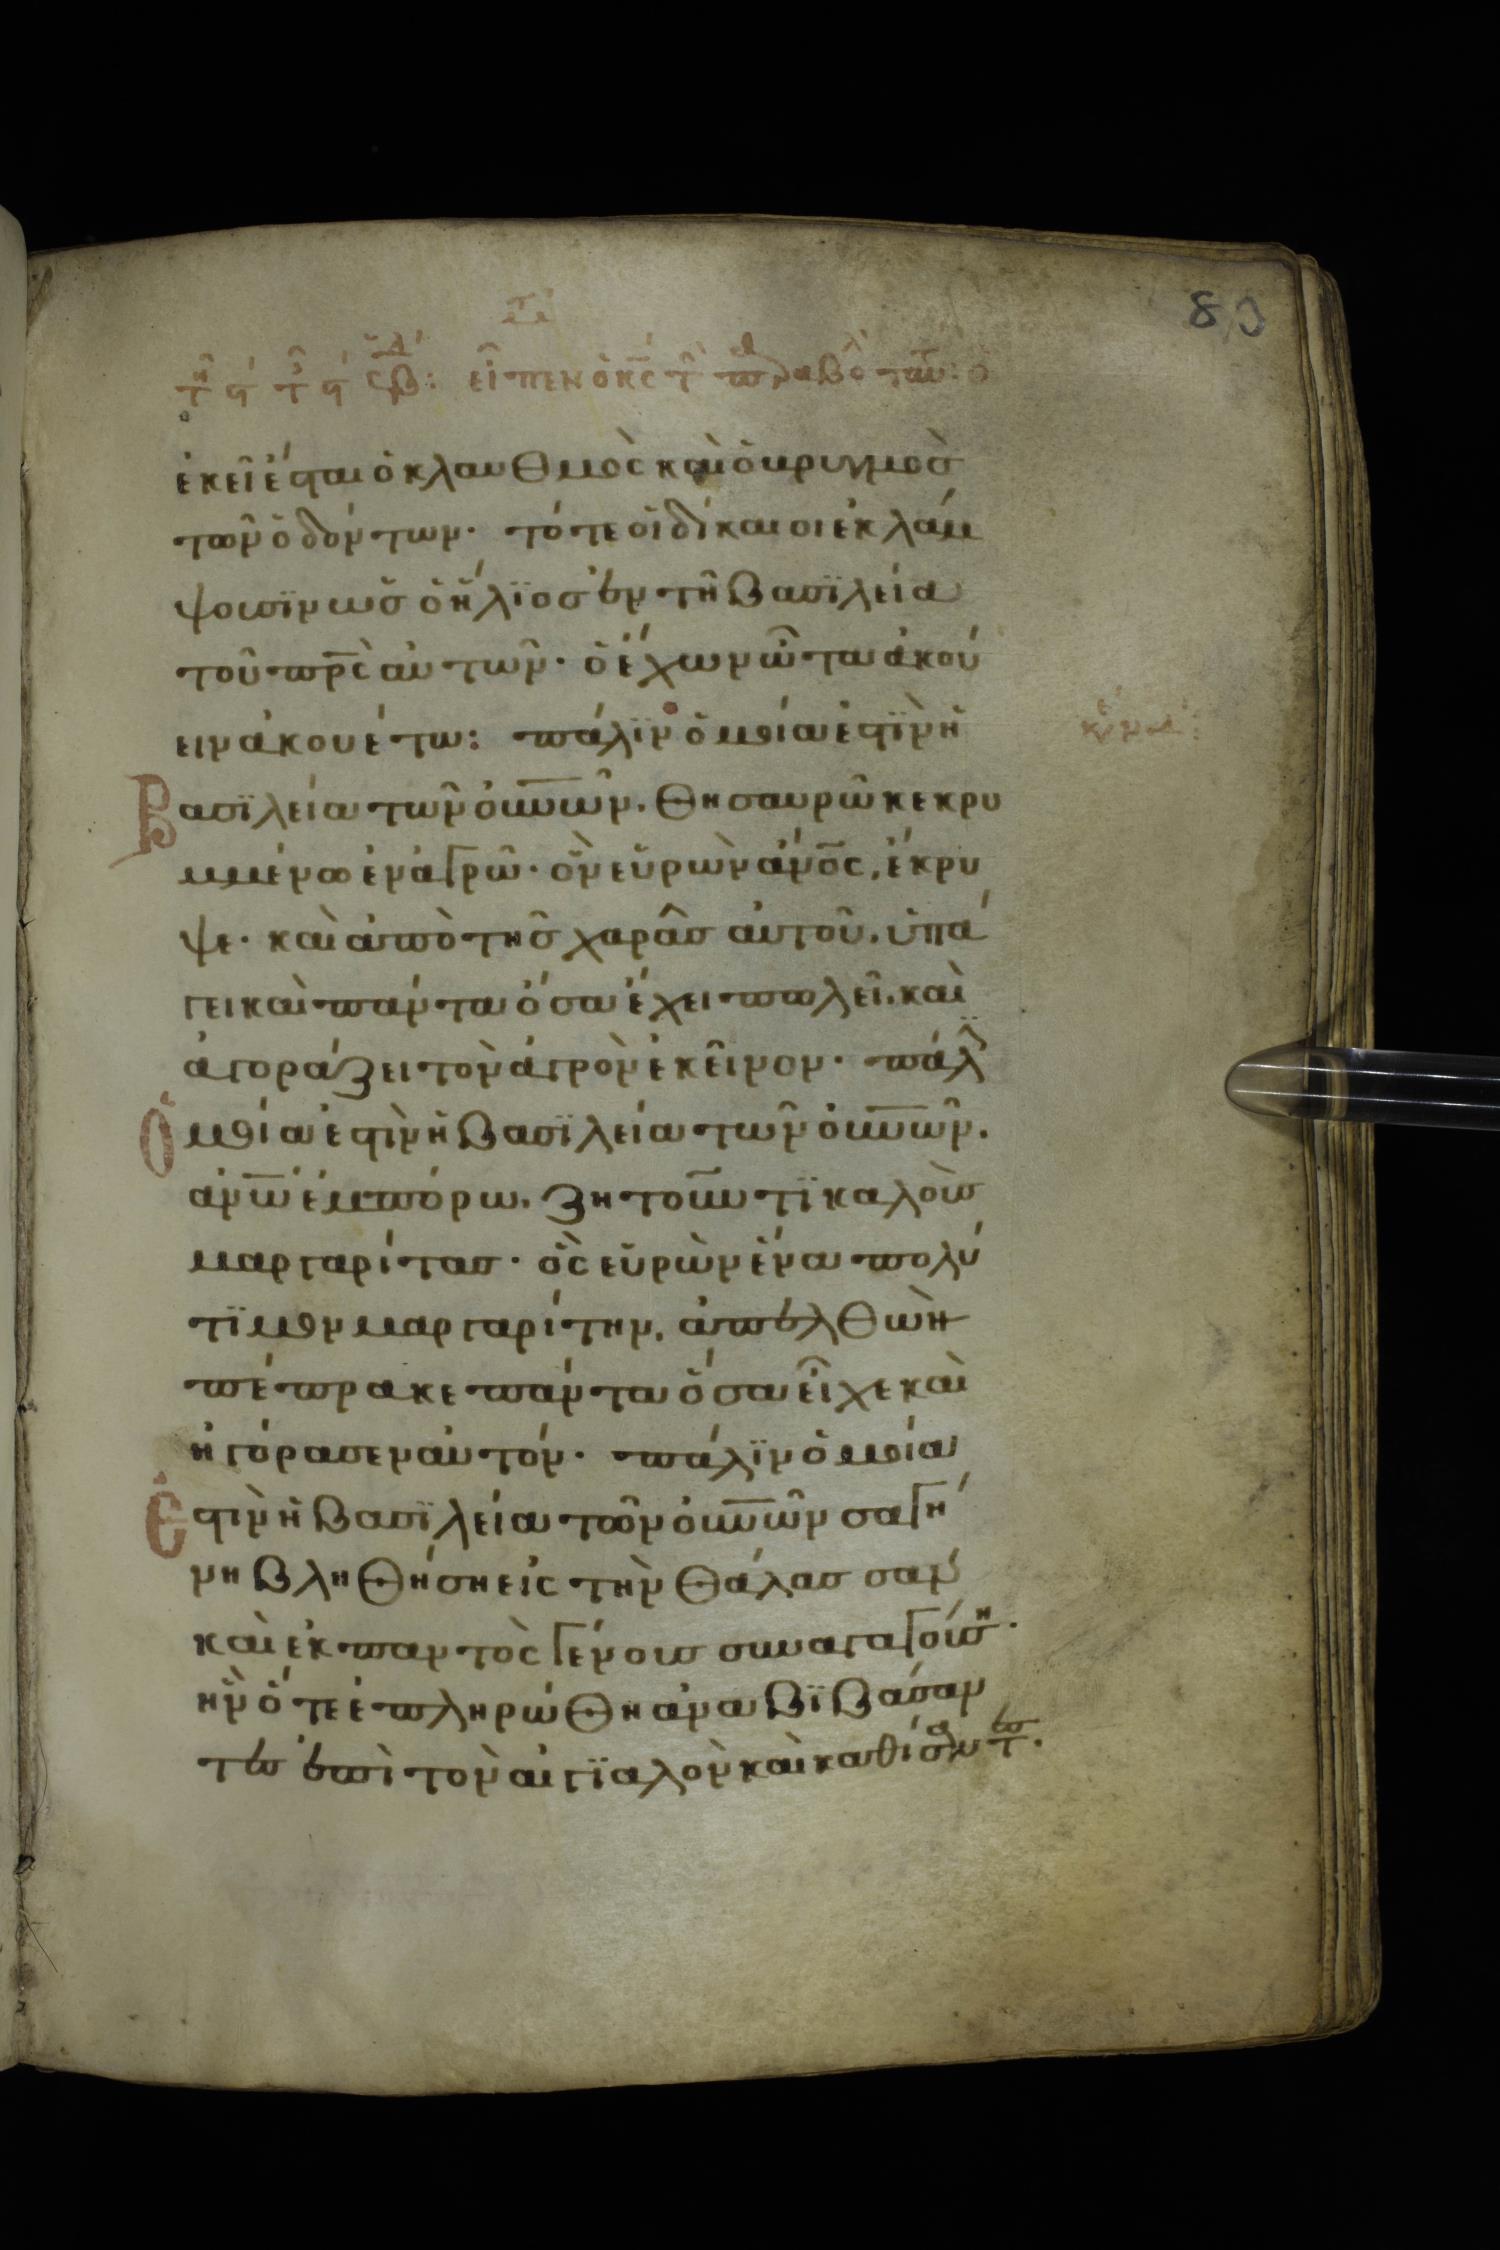 εἶπεν ὁ κς
ἐκεῖ ἔσται ὁ κλαυθμὸς καὶ ὁ βρυγμὸσ
τῶν ὀδόντων· τότε οἱ δίκαιοι ἐκλάμ
ψουσϊν ὡσ ὁ ἥλϊοσ ἐν τῆ βασϊλεία
τοῦ πρς αὐτῶν· ὁ ἔχων ὦτα ἀκού
ειν ἀκουέτω: πάλϊν ὁμοία ἐστϊν ἡ
βασϊλεία τῶν οὐνῶν. θησαυρῶ κεκρυ
μμένω ἐν ἀγρῶ· ὃν εὑρὼν ἀνος, ἔκρυ
ψε· καὶ ἀπὸ τῆσ χαρᾶσ αὐτοῦ. ὑπά
γει καὶ πάντα ὅσα ἔχει πωλεῖ. καὶ
ἀγοράζει τὸν ἀγρὸν ἐκεῖνον· πάλϊ
ὁμοία ἐστὶν ἡ βασϊλεία τῶν οὐνῶν.
ἀνω ἐμπόρω. ζητοῦντϊ καλοὺσ
μαργαρίτασ· ὃς εὑρὼν ἕνα πολύ
τϊμον μαργαρίτην, ἀπελθὼν
πέπρακε πάντα ὅσα εἶχε καὶ
ἠγόρασεν αὐτόν· πάλϊν ὁμοία
ἐστὶν ἡ βασϊλεία τῶν οὐνῶν σαγή
νη βληθήση εἰς τὴν θάλασσαν
καὶ ἐκ παντὸς γένουσ συναγαγούση·
ἣν ὅτε ἐπληρώθη ἀναβϊβάσαν
τεσ ἐπὶ τὸν αἰγϊαλὸν καὶ καθίσαντες.